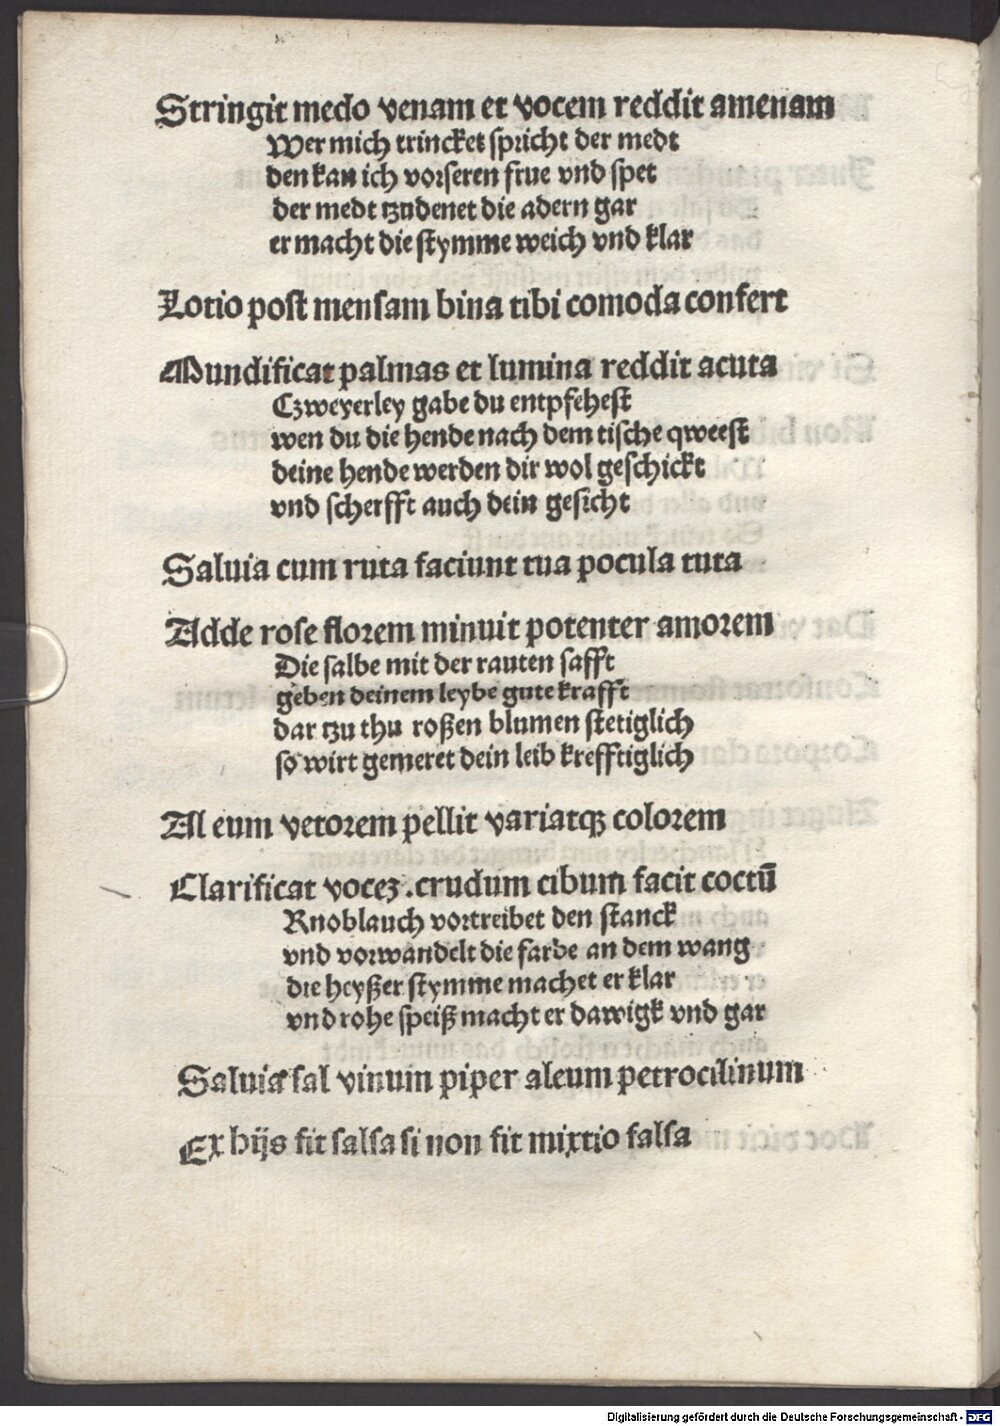 Stringit medo venam et vocem reddit amenam
Wer mich trincket spricht der medt
den kan ich vorseren frue vnd spet
der medt tzudenet die adern gar
er macht die stymme weich vnd klar
Lotio post mensam bina tibi comoda confert
Mundificat palmas et lumina reddit acuta
Czweyerley gabe du entpfehest
wen du die hende nach dem tische qweest
deine hende werden dir wol geschickt
vnd scherfft auch dein gesicht
Saluia cum ruta faciunt tua pocula tuta
Adde rose florem minuit potenter amorem
Die salbe mit der rauten safft
geben deinem leybe gute krafft
dar tzu thu roßen blumen stetiglich
so wirt gemeret dein leib krefftiglich
Al eum vetorem pellit variatqꝫ colorem
Clarificat voceꝫ .crudum cibum facit coctū
Knoblauch vortreibet den stanck
vnd vorwandelt die farbe an dem wang
die heyßer stymme machet er klar
vnd rohe speiß macht er dawigk vnd gar
Saluia sal vinum piper aleum petrocilinum
Ex hijs fit salsa si non fit mixtio falsa
Digitalisierung gefördert durch die Deutsche Forschungsgemeinschaft - DFG